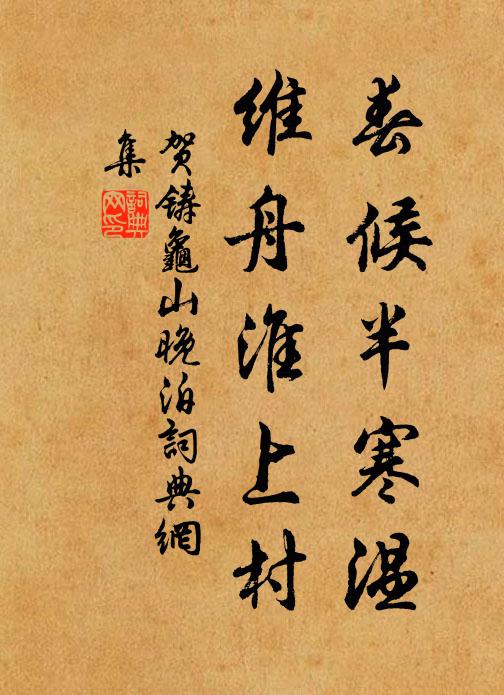 春候半寒温
維舟淮上村
賀鑄龜山晚泊詞典網
集
詞典
网印